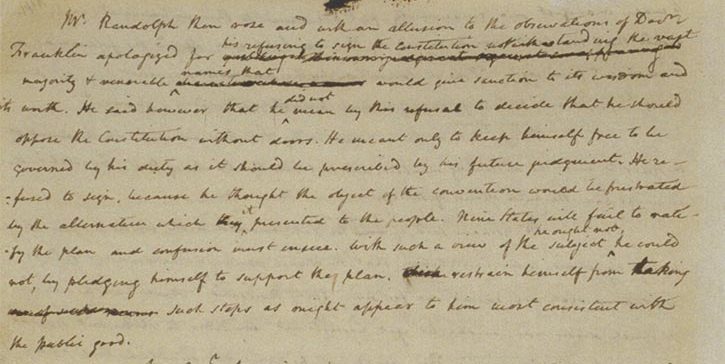 Mr. Randolph then rose and with an allusion to the observations of Docr.
Franklin apologized for his refusing to sign the Constitution notwithstanding the vast
majority & venerable names that would give sanction to its wisdom and
its worth. He said however that he did not mean by this refusal to decide that he should
oppose the Constitution without doors. He meant only to keep himself free to be
governed by his duty as it should be prescribed by his future judgment. He re-
-fused to sign, because he thought the object of the convention would be frustrated
by the alternative which it presented to the people. Nine States will fail to rati-
-fy the plan and confusion must ensue. With such a view of the subject he ought not, he could
not, by pledging himself to support the plan, restrain himself from taking
such steps as might appear to him most consistent with
the public good.